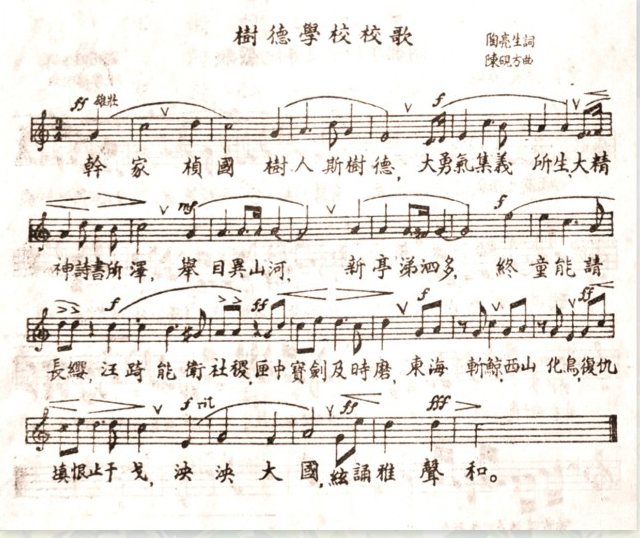 樹德學校校歌
陶亮生詞
陳硯方曲
ff 雄壯 f
幹家楨國樹人斯樹德，大勇氣集義所生，大精
mf f
神詩書所澤，舉目異山河，新亭涕泗多，終童能請
f ff f ff
長纓，汪踦能衛社稷，匣中寶劍及時磨，東海斬鯨，西山化鳥，復仇
f rit ff fff
填恨止干戈，泱泱大國，絃誦雅聲和。